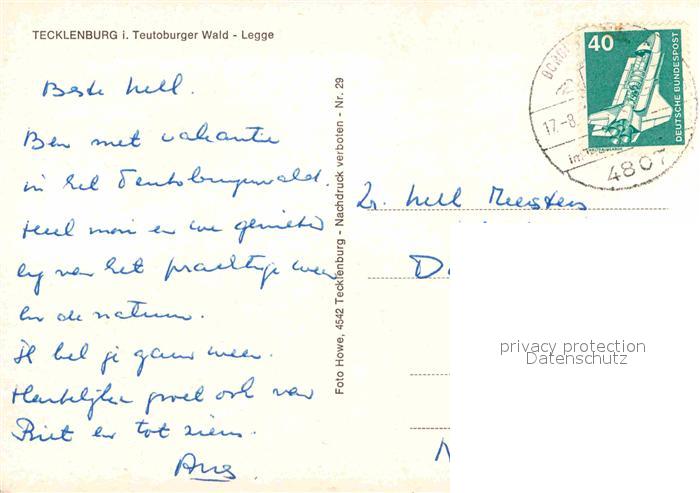 TECKLENBURG i. Teutoburger Wald - Legge
Beste Nell.
Ben met vakantie
in het Teutoburgerwald.
Heel mooi en we genieten
erg van het prachtige weer
en de natuur.
Ik bel je gauw weer.
Hartelijke groet ook van
Riet en tot ziens.
Ans
Foto Howe, 4542 Tecklenburg - Nachdruck verboten - Nr. 29
40
DEUTSCHE BUNDESPOST
17.-8.
4807
Zr. Nell Meesters
privacy protection
Datenschutz